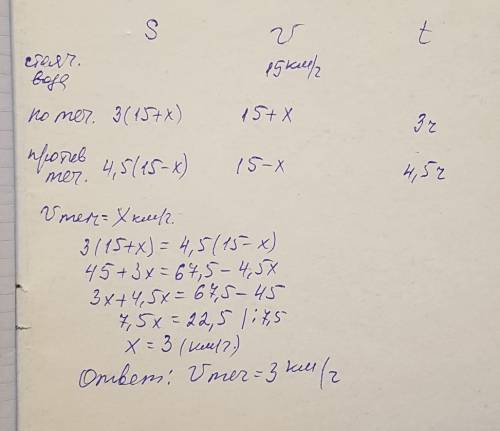 S V t
стояч.
вода 15 км/ч
по теч. 3(15+x) 15+x 3ч
против
теч. 4,5(15-x) 15-x 4,5ч
Vтеч=X км/ч.
3(15+x)=4,5(15-x)
45+3x=67,5-4,5x
3x+4,5x=67,5-45
7,5x=22,5 |:7,5
x=3 (км/ч.)
Ответ: Vтеч=3 км/ч